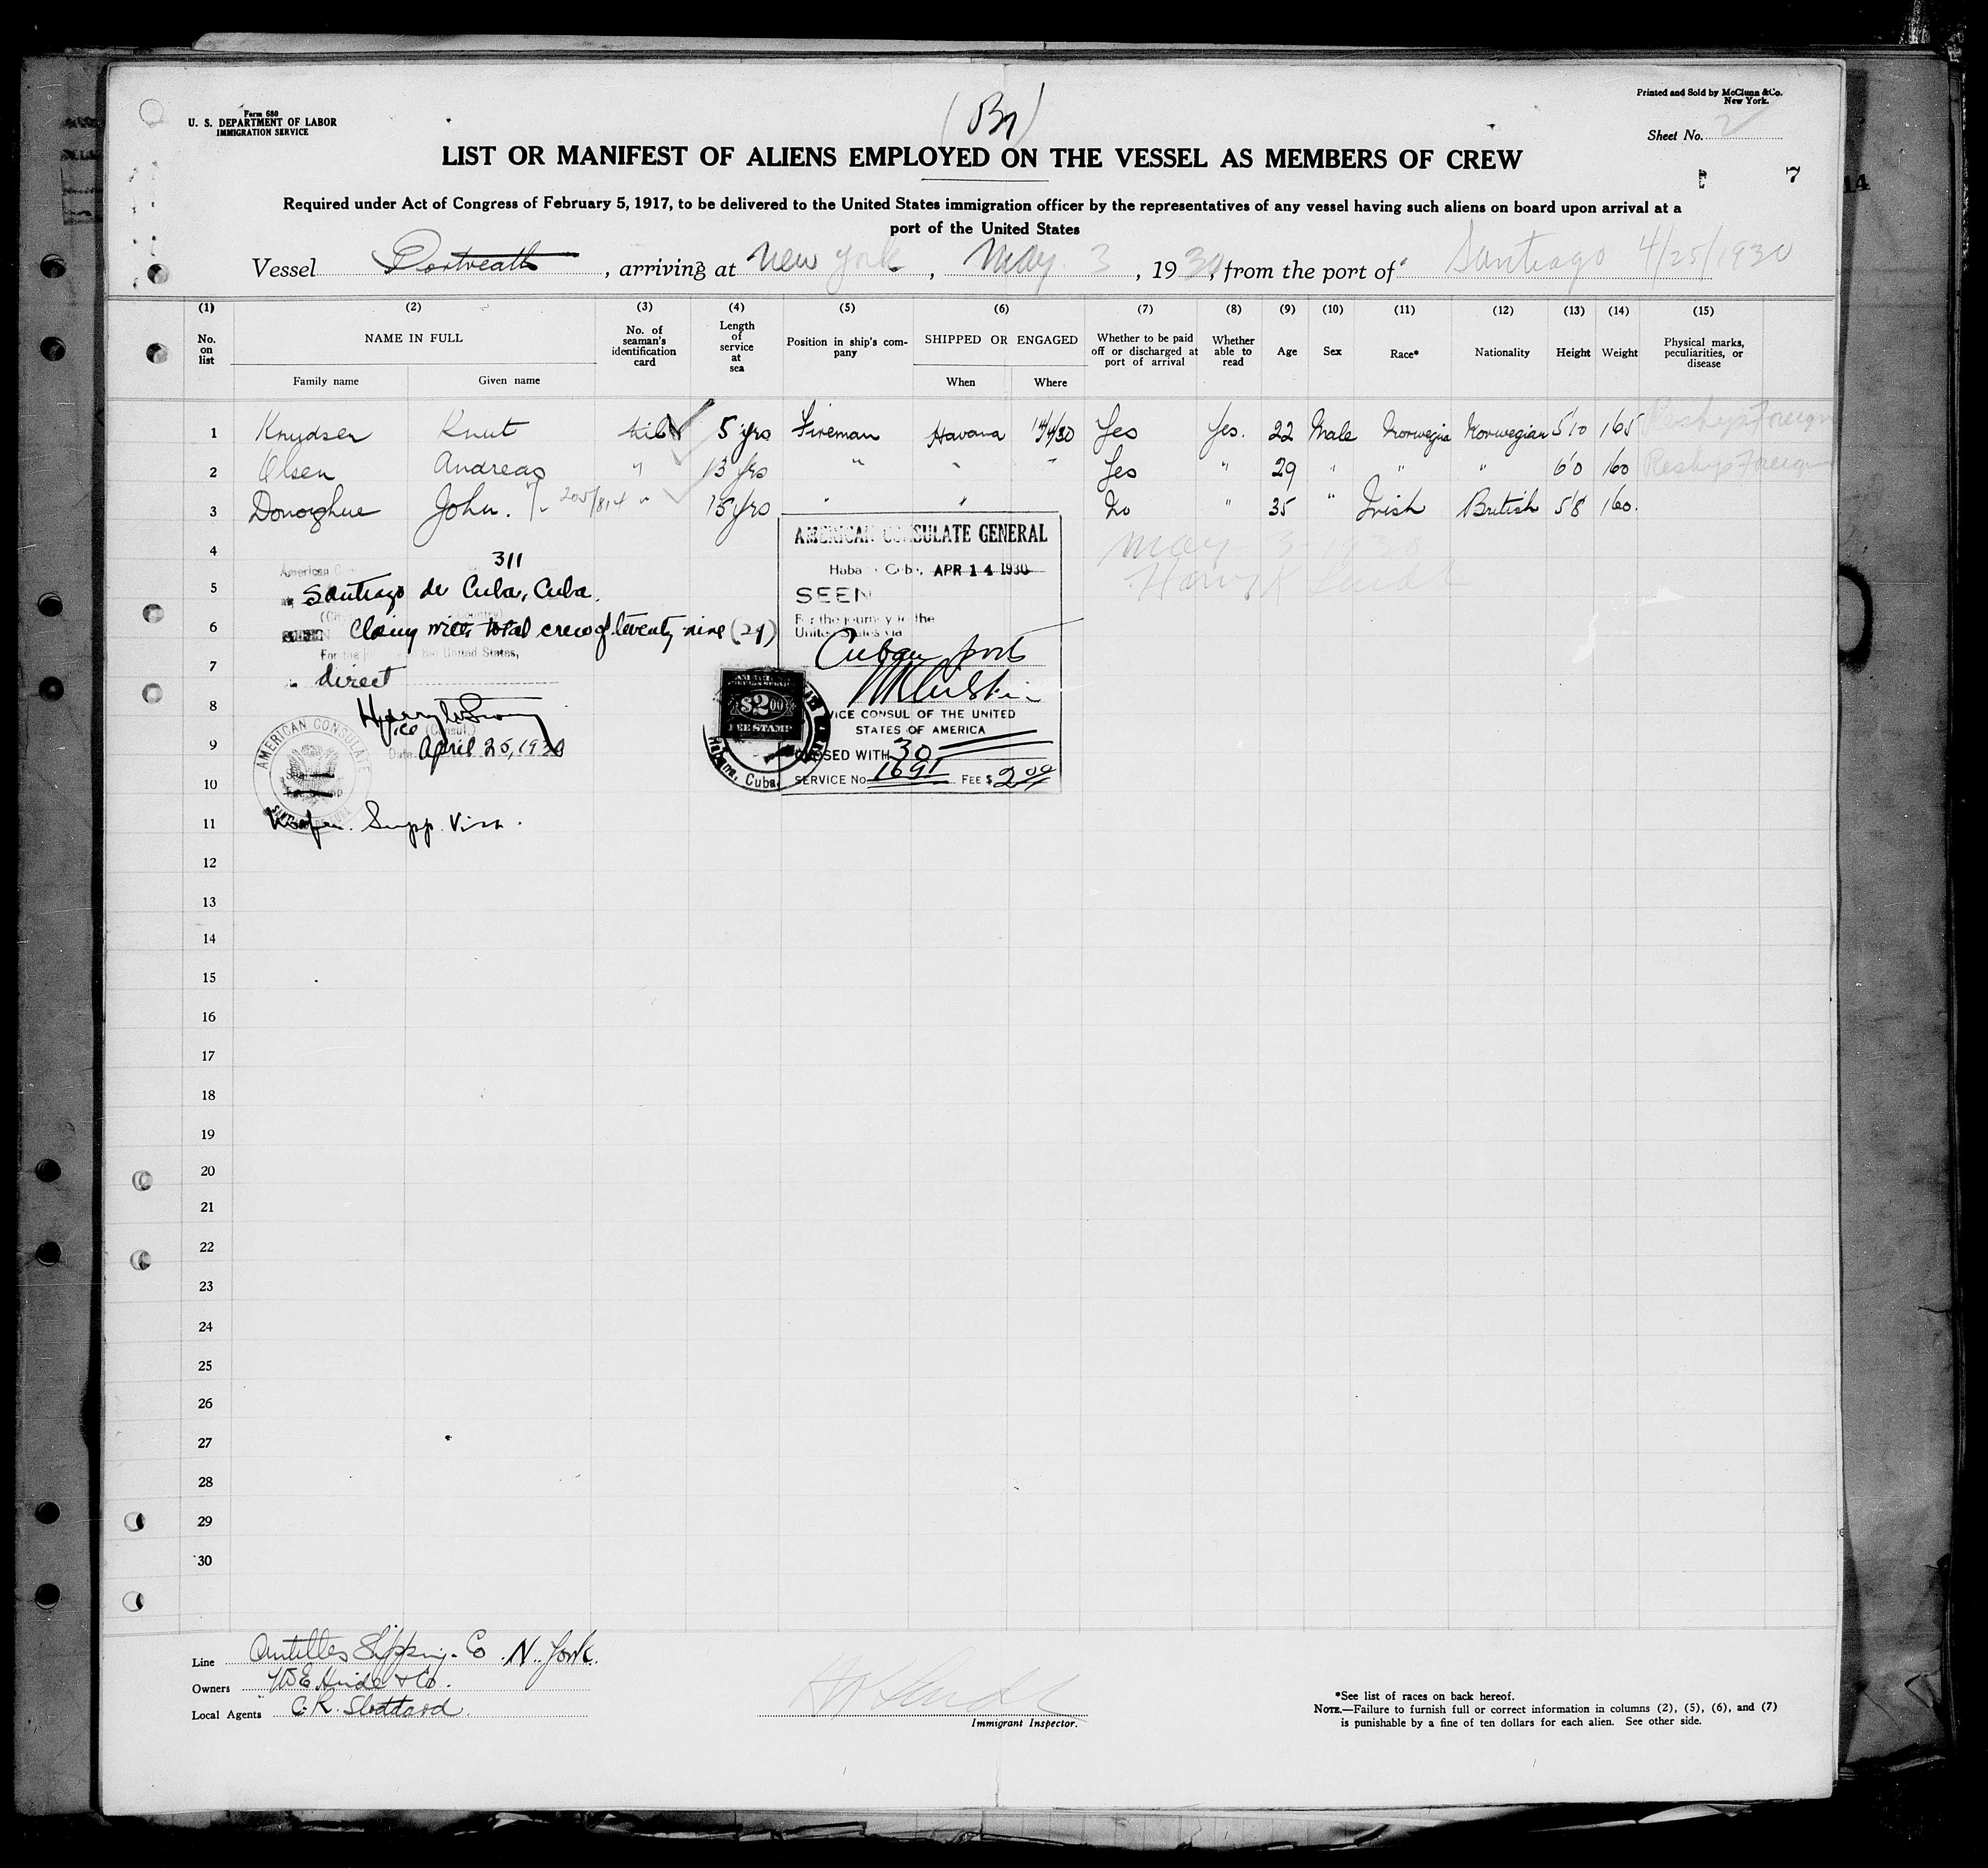 Form 680
U. S. DEPARTMENT OF LABOR
IMMIGRATION SERVICE
(Br)
Printed and Sold by McClunn & Co.
New York.
Sheet No. 2
LIST OR MANIFEST OF ALIENS EMPLOYED ON THE VESSEL AS MEMBERS OF CREW
7
14
Required under Act of Congress of February 5, 1917, to be delivered to the United States immigration officer by the representatives of any vessel having such aliens on board upon arrival at a
port of the United States
Vessel Portreath, arriving at New York, May 3, 1930, from the port of Santiago 4/25/1930
(1) (2) (3) (4) (5) (6) (7) (8) (9) (10) (11) (12) (13) (14) (15)
No. on list
NAME IN FULL
Family name
Given name
No. of seaman's identification card
Length of service at sea
Position in ship's company
SHIPPED OR ENGAGED
When
Where
Whether to be paid off or discharged at port of arrival
Whether able to read
Age
Sex
Race*
Nationality
Height
Weight
Physical marks, peculiarities, or disease
1 Knudsen Knut nil 5 yrs Fireman Havana 14/4/30 Yes Yes. 22 Male Norwegia Norwegian 5'10 165 Reship Foreign
2 Olsen Andreas " 13 yrs " " " Yes " 29 " " " 6'0 160 Reship Foreign
3 Donoghue John. 205/814 " 15 yrs " " No " 35 " Irish British 5'8 160.
4
5
6
7
8
9
10
11
12
13
14
15
16
17
18
19
20
21
22
23
24
25
26
27
28
29
30
May 3 1930
311
American
Santiago de Cuba, Cuba.
Closing with total crew of twenty nine (29)
For the United States,
direct
Vice (Consul.)
Date April 25, 1930
AMERICAN CONSULATE
Supp. Visa.
AMERICAN CONSULATE GENERAL
Habana, Cuba, APR 14 1930
SEEN
For the journey to the
United States via
Cuban ports
VICE CONSUL OF THE UNITED
STATES OF AMERICA
CLOSED WITH 30
SERVICE No. 1691 FEE $ 2.00
$2.00
FEE STAMP
Habana, Cuba
Line Antilles Shipping Co N. York.
Owners W E Hinde & Co.
Local Agents C. R. Stoddard.
Immigrant Inspector.
*See list of races on back hereof.
NOTE.—Failure to furnish full or correct information in columns (2), (5), (6), and (7)
is punishable by a fine of ten dollars for each alien. See other side.